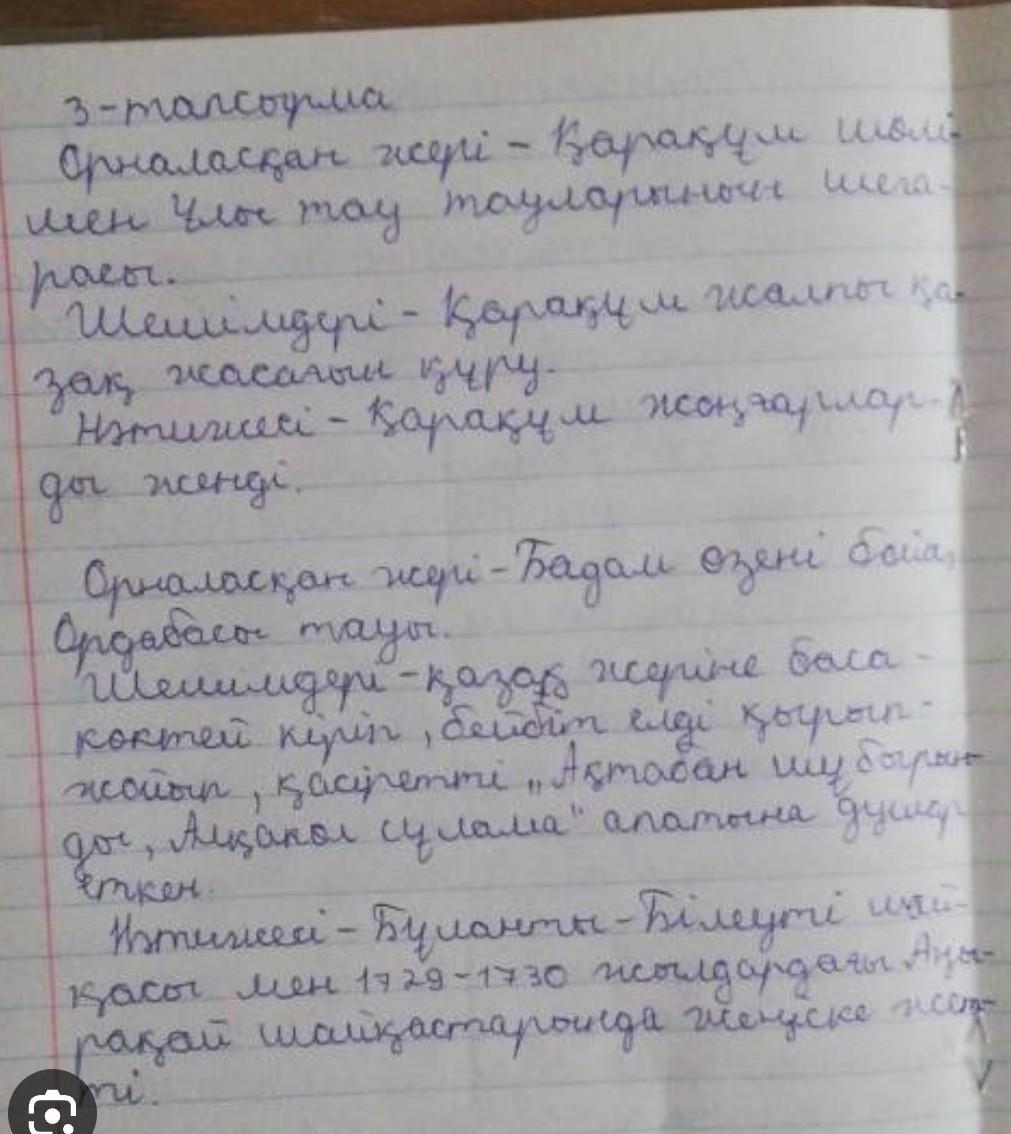 3-тапсырма
Орналасқан жері - Қарақұм шөлі
мен Ұлы тау тауларының шега-
расы.
Шешімдері - Қарақұм жалпы қа-
зақ жасағын құру.
Нәтижесі - Қарақұм жоңғарлар-
ды женді.
Орналасқан жері - Бадам өзені бойы,
Ордабасы тауы.
Шешімдері - қазақ жеріне баса -
көктей кіріп, бейбіт елді қырып-
жойып, қасіретті „Ақтабан шұбырын-
ды, Алқакөл сұлама" апатына душар
еткен.
Нәтижесі - Бұланты - Білеуті шай-
қасы мен 1729-1730 жылдардағы Аңы-
рақай шайқастарында жеңіске жет-
ті.